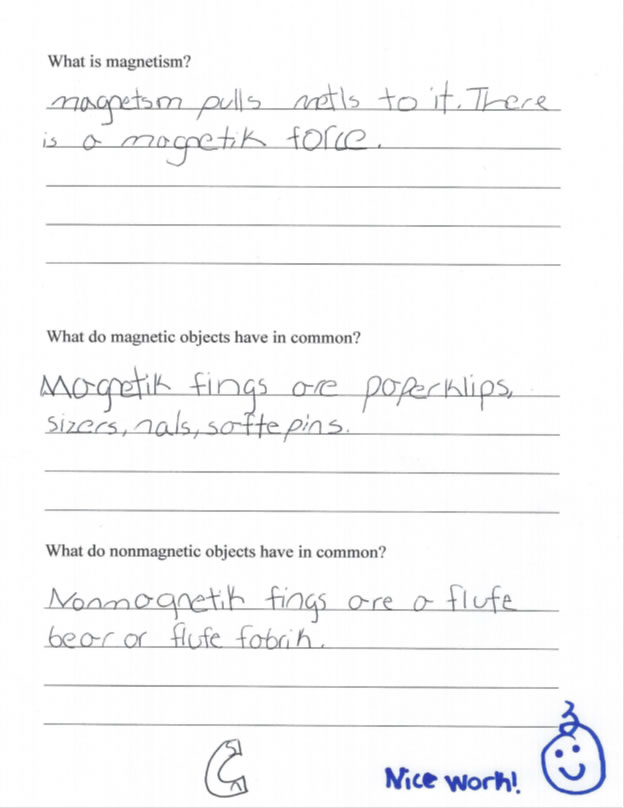 What is magnetism?
magnetsm pulls metls to it. There
is a magnetik force.
What do magnetic objects have in common?
Magnetik fings are paperklips,
sizers, nals, saftepins.
What do nonmagnetic objects have in common?
Nonmagnetik fings are a flufe
bear or flufe fabrik.
Nice work!